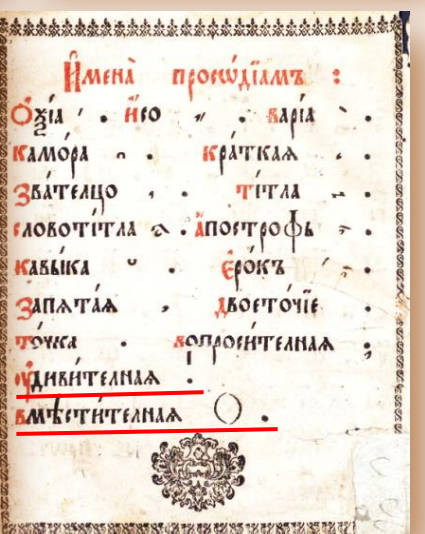 Имена̀ просѡді́амъ :
Оѯі́а ́ . И҆со ̏ . варі́а ̀ .
камо́ра ̑ . кра́ткаѧ ̆ .
Зва́телцо ҆ . ті́тла ҃ .
словоті́тла . а҆постро́фъ .
кавы́ка . є҆ро́къ .
Запѧта́ѧ , . двоето́чїе : .
то́чка . вопроси́телнаѧ ; .
оу҆диви́телнаѧ !
вмѣсти́телнаѧ () .